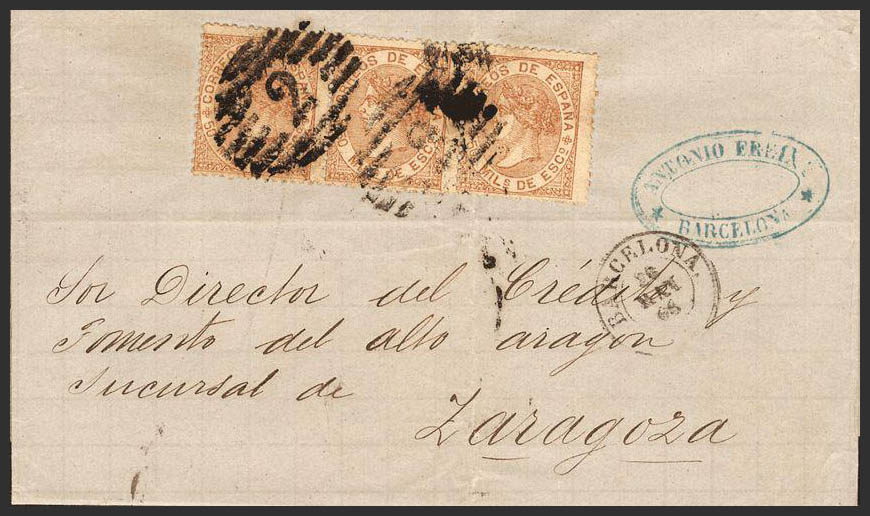 CORREOS
2
CORREOS DE ESPAÑA
MILS DE ESCO
CORREOS DE ESPAÑA
MILS DE ESCO
ANTONIO FREIX
BARCELONA
BARCELONA
Sor Director del Crédito y
Fomento del alto aragon
Sucursal de
Zaragoza